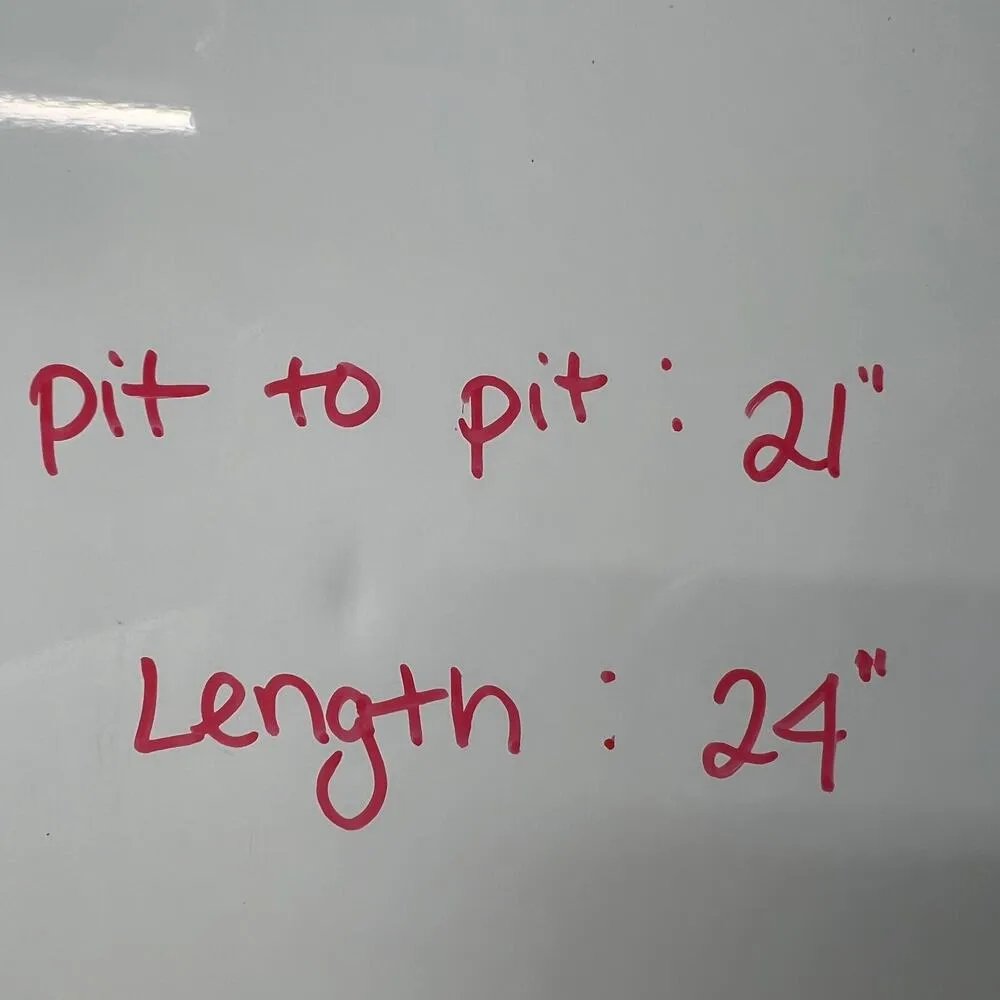 pit to pit : 21"
Length : 24"